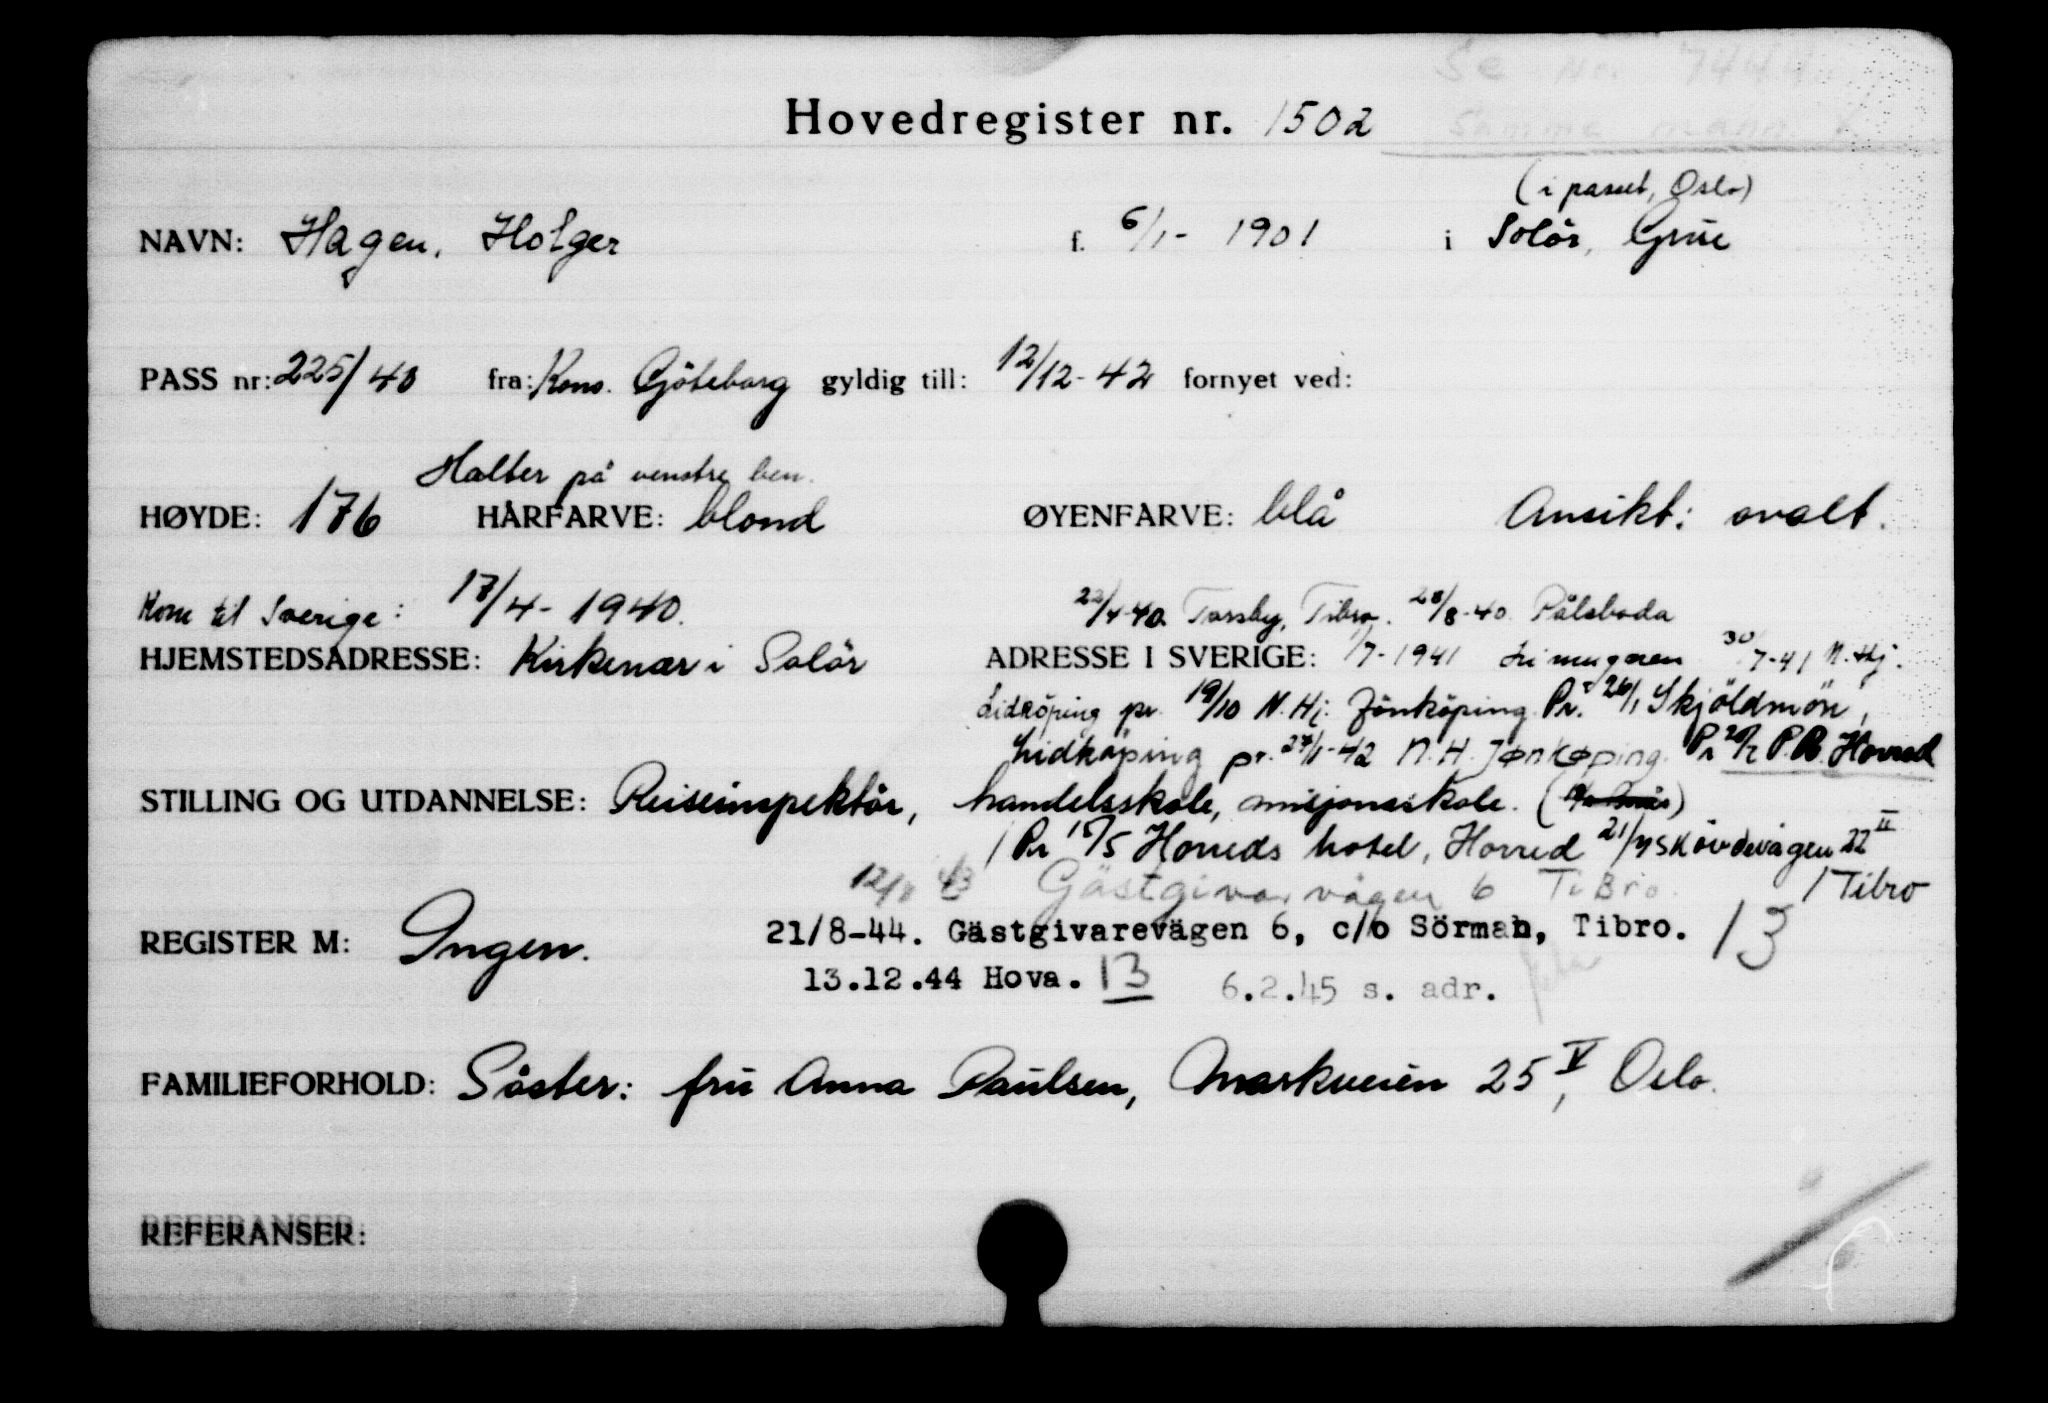 Se nr. 7444
Hovedregister nr. 1502 samme mann
(i passet, Oslo)
NAVN: Hagen, Holger f. 6/1- 1901 i Solör, Grue
PASS nr: 225/40 fra: Kons. Göteborg gyldig till: 12/12-42 fornyet ved:
Halter på venstre ben.
HØYDE: 176 HÅRFARVE: blond ØYENFARVE: blå Ansikt: ovalt.
Kom til Sverige: 17/4- 1940. 22/4-40 Torsby, Tibro. 28/8-40 Pålsboda
HJEMSTEDSADRESSE: Kirkenær i Solör ADRESSE I SVERIGE: 1/7-1941 30/7-41 N.Hj.
Lidköping pr. 19/10 N.Hj. Jönköping. Pr. 26/1 Skjöldmön,
Lidköping pr. 27/1-42 N.H. Jønkøping. Pr P.R. Horred
STILLING OG UTDANNELSE: Reiseinspektör, handelsskole, misjonsskole.
/ Pr 15/5 Horreds hotel, Horred 21/7 Skövdevägen 22 II
12/8 43 Gästgivarvägen 6 Tibro. / Tibro
REGISTER M: Ingen. 21/8-44. Gästgivarevägen 6, c/o Sörman, Tibro. 13
13.12.44 Hova. 13 6.2.45 s. adr.
FAMILIEFORHOLD: Söster: fru Anna Paulsen, Markveien 25 V, Oslo.
REFERANSER: